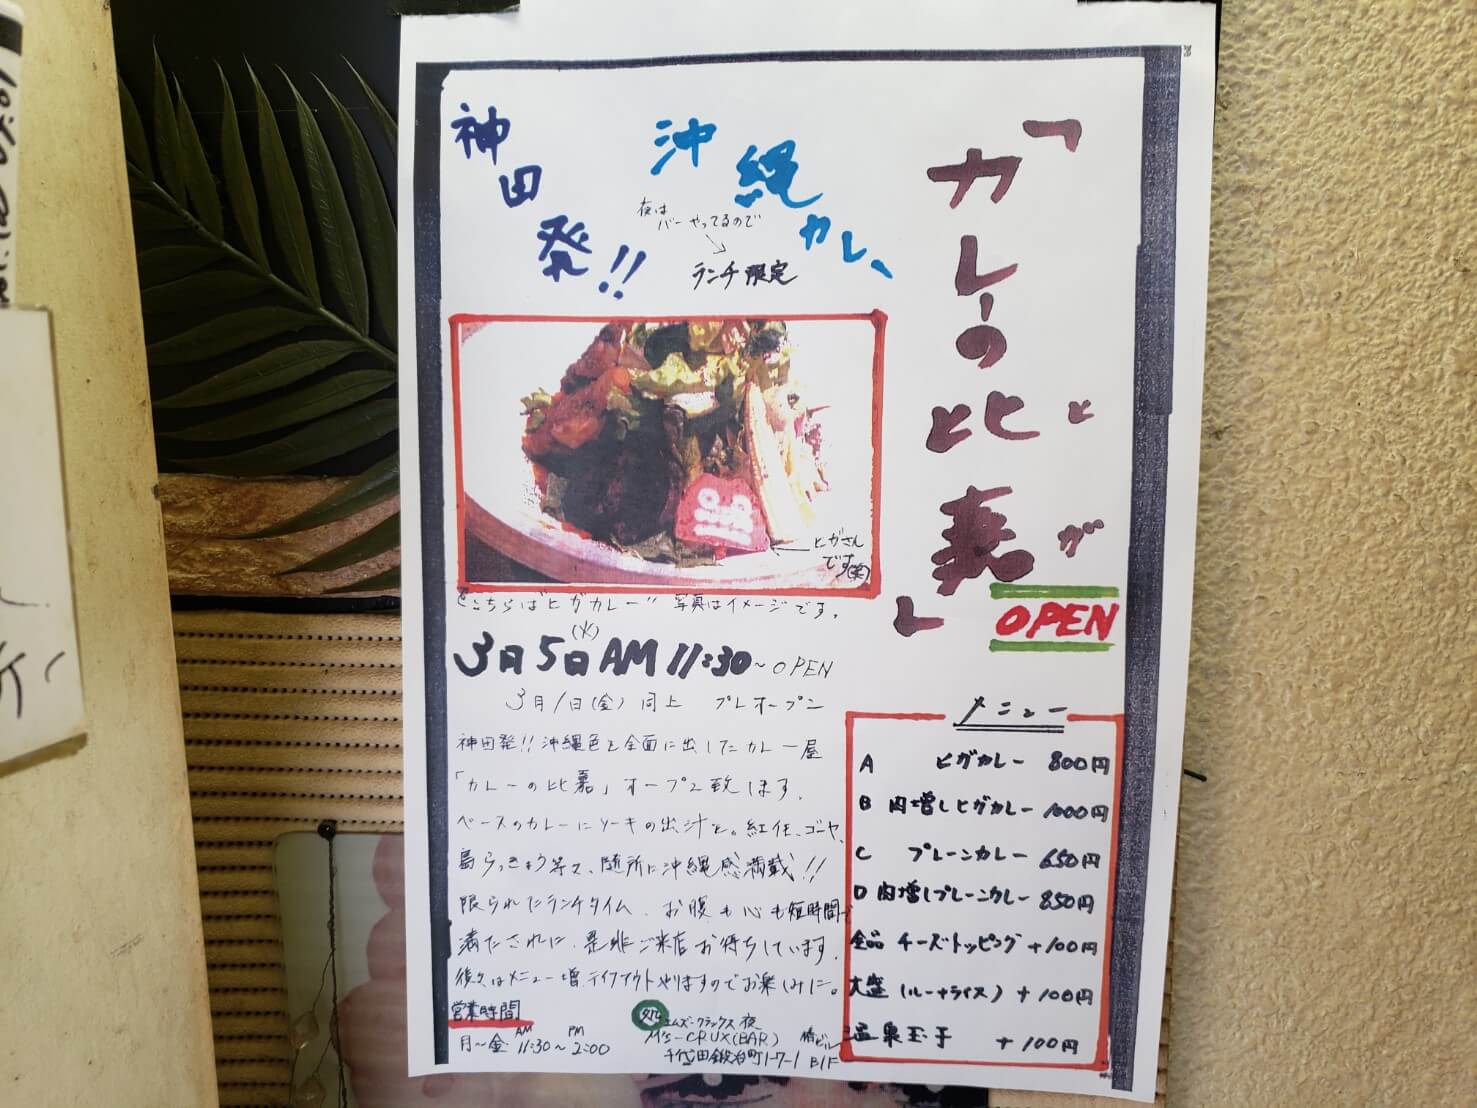 「カレーの比嘉」
ヒガ
OPEN
神田発!!
沖縄カレー
夜は
バーやってるので
ランチ限定
ヒガさん
です(笑)
こちらは"ヒガカレー" 写真はイメージです。
3月5日(火)AM11:30~OPEN
3月1日(金) 同上 プレオープン
神田発!!沖縄色を全面に出したカレー屋
「カレーの比嘉」オープン致します。
ベースのカレーにソーキの出汁と。紅任、ゴーヤ、
島らっきょう等で、随所に沖縄感満載!!
限られたランチタイム、お腹も心も短時間で
満たされに、是非ご来店お待ちしています。
後々はメニュー増、テイクアウトやりますのでお楽しみに。
営業時間
AM PM
月~金 11:30~2:00
エムズ・クラックス 夜
M's-CRUX(BAR)
千代田鍛冶町1-7-1 B1F
メニュー
A ヒガカレー 800円
B 肉増しヒガカレー 1000円
C プレーンカレー 650円
D 肉増しプレーンカレー 850円
全品 チーズトッピング +100円
大盛(ルー+ライス) +100円
温泉玉子 +100円